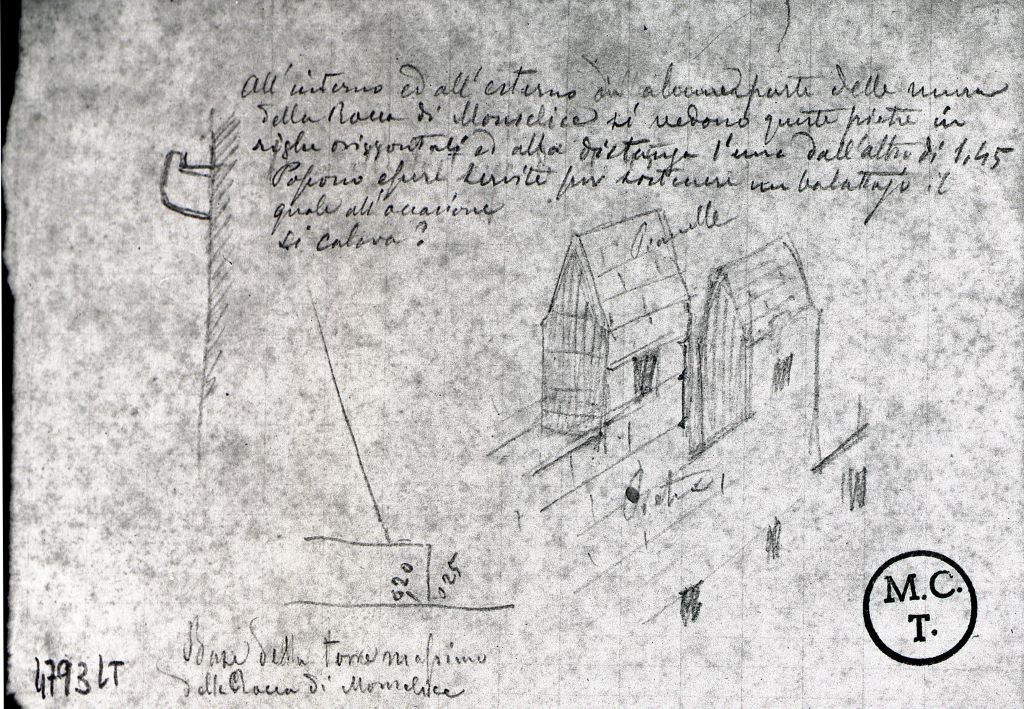 All'interno ed all'esterno di alcune parte delle mura
della Rocca di Monselice si vedono queste pietre in
righe orizzontali ed alla distanza l'una dall'altro di 1,45
Possono essere servite per sostenere un ballattojo il
quale all'occasione
si calava?
Pianelle
Pietra
0,20
0,25
Base della torre massima
della Rocca di Monselice
4793 LT
M.C.
T.